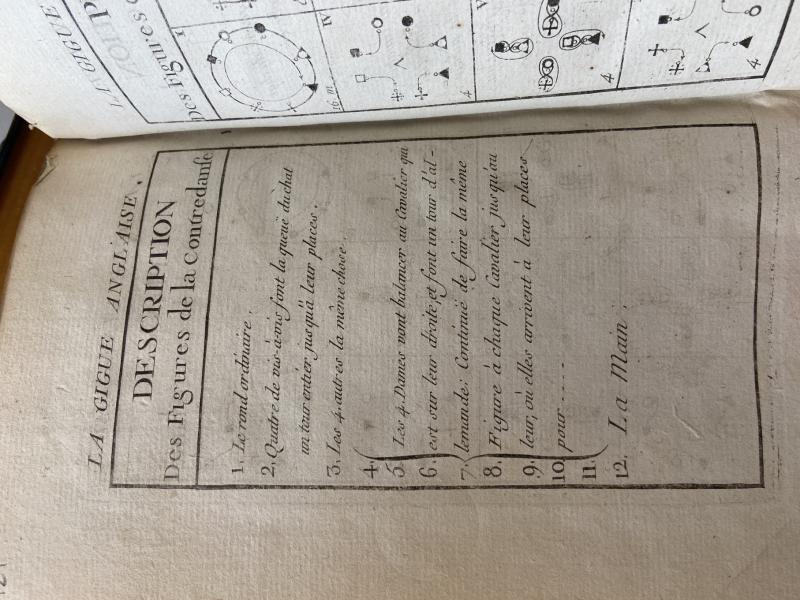 LA GIGUE ANGLAISE.
DESCRIPTION
Des Figures de la Contredanse
1. Le rond ordinaire.
2. Quatre de vis-à-vis font la queuë du chat
un tour entier jusqu'à leur places.
3. Les 4. autres la même chose.
4.
5. Les 4. Dames vont balancer au Cavalier qui
6. est sur leur droite et font un tour d'al-
7. lemande; Continuë de faire la même
8. Figure à chaque Cavalier jusqu'au
9. leur, où elles arrivent à leur places
10. pour ----
11.
12. La Main.
LA GIGUE
Des Figures
I
16 m.
IV
4
V
4
4